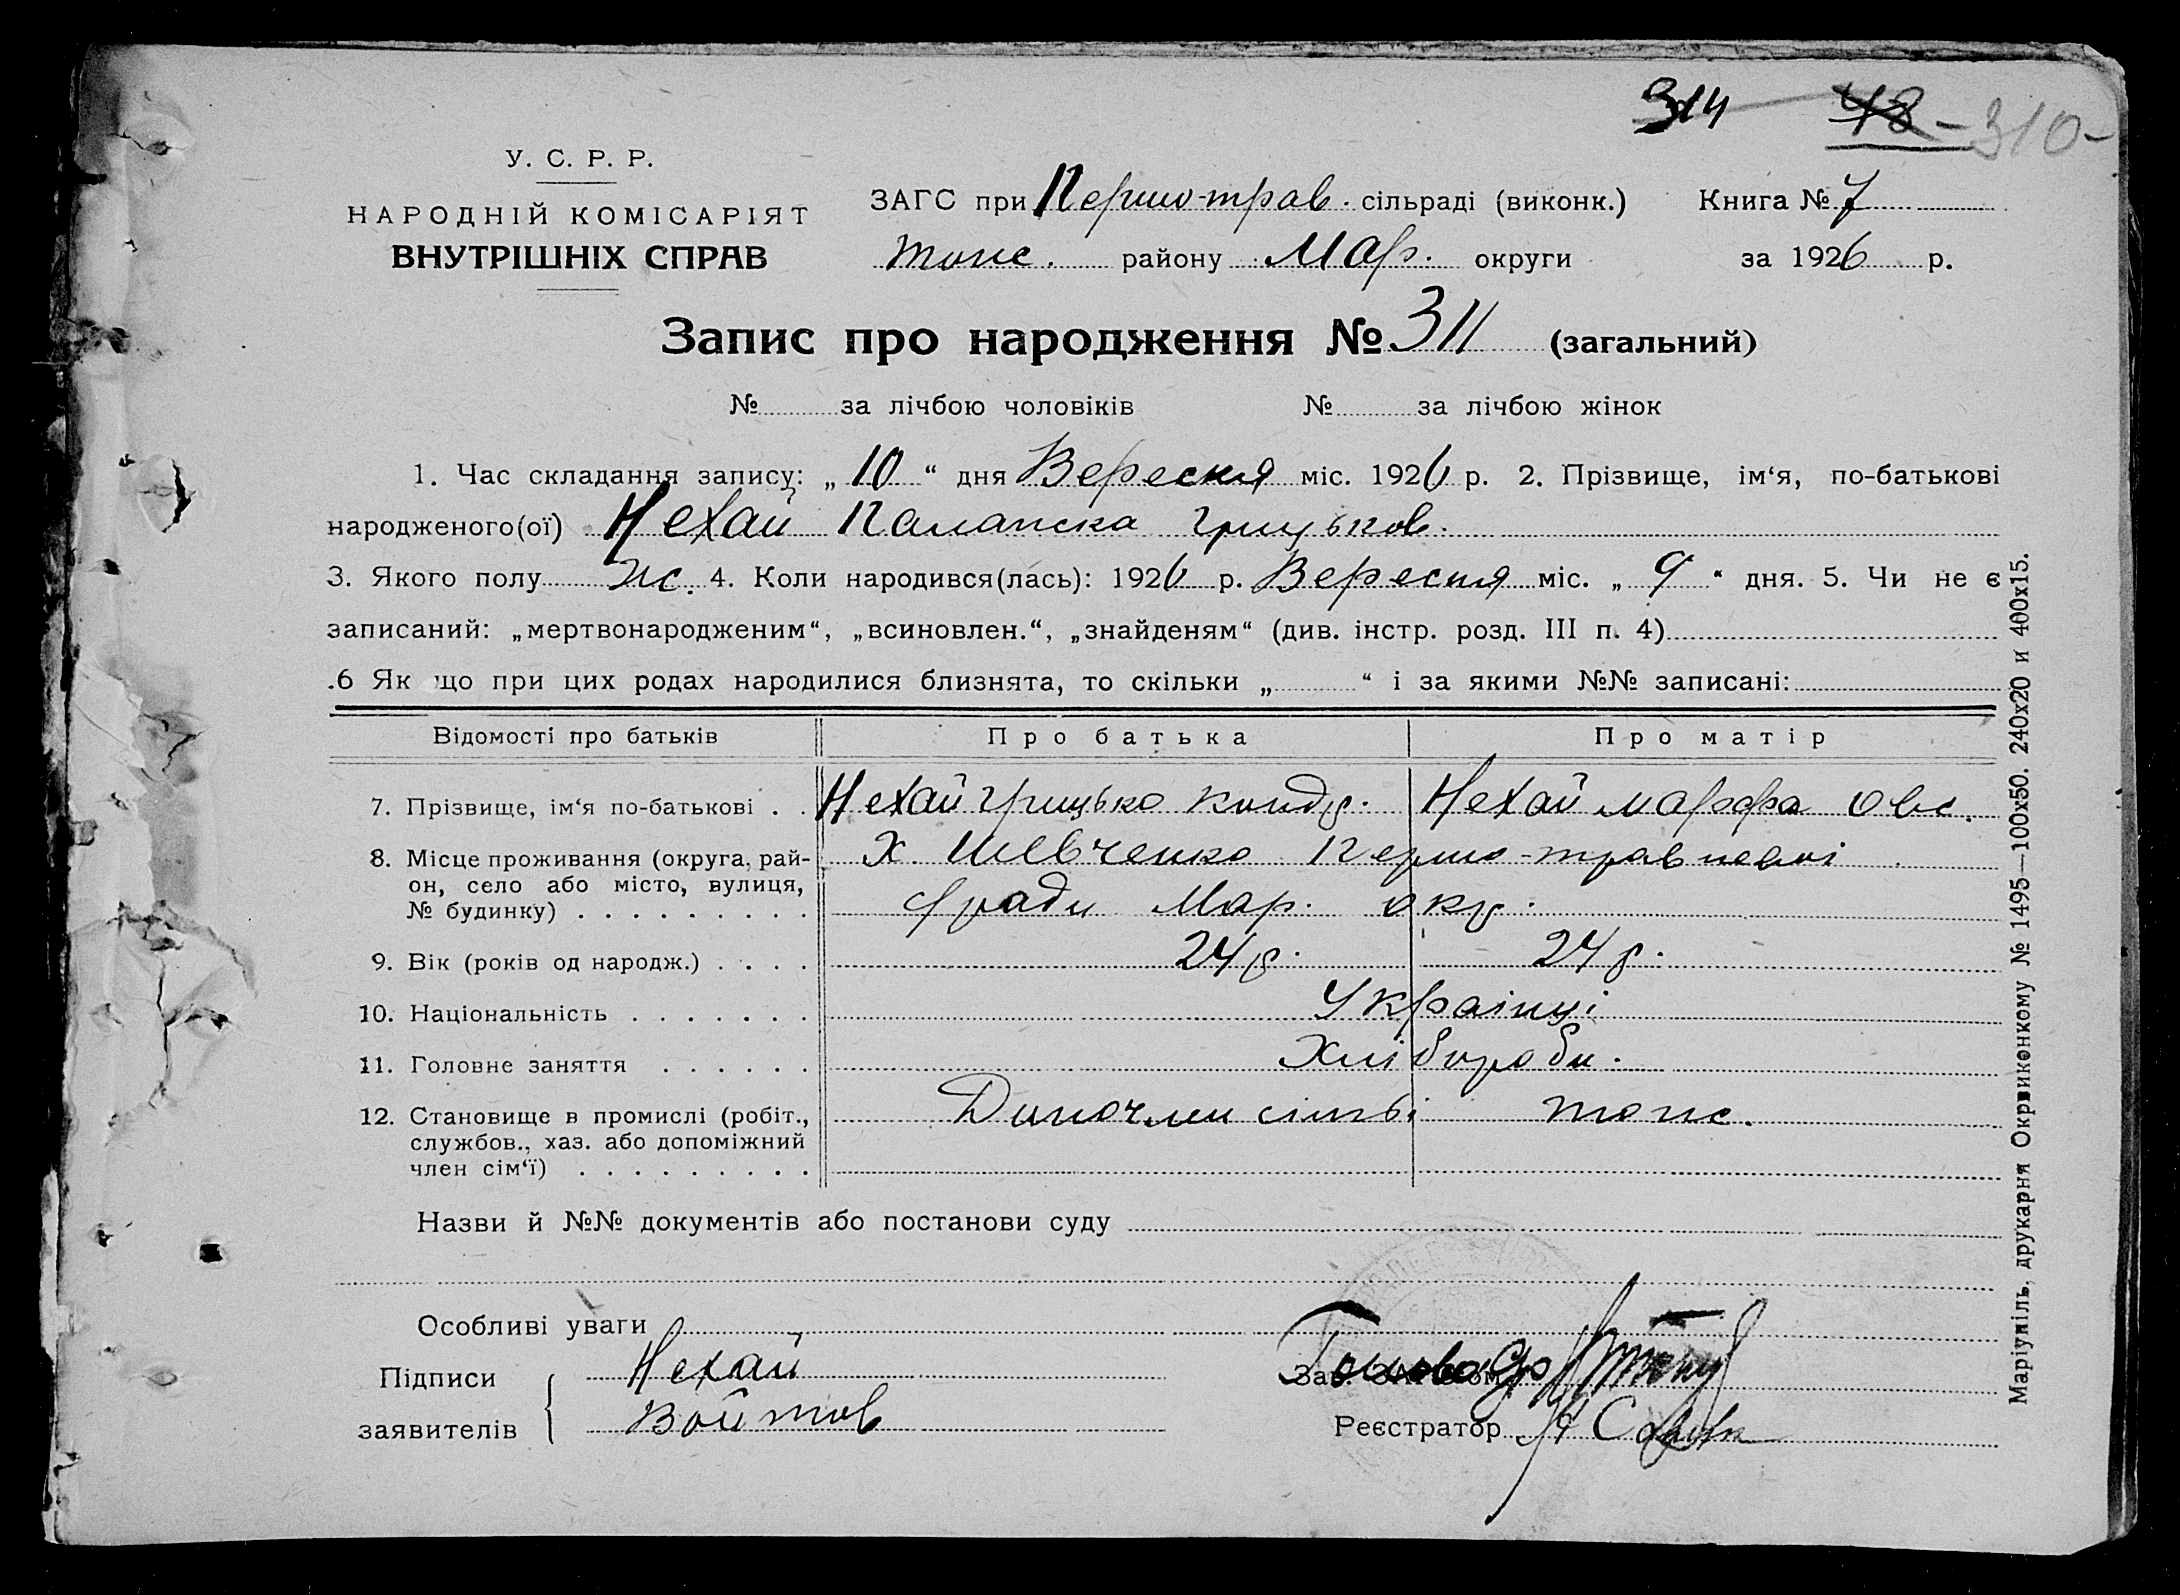 314 48 - 310 -
У. С. Р. Р.
НАРОДНІЙ КОМІСАРІЯТ
ВНУТРІШНІХ СПРАВ
ЗАГС при Першо-трав. сільраді (виконк.) Книга № 7
району Мар. округи за 1926 р.
Запис про народження № 311 (загальний)
№ за лічбою чоловіків № за лічбою жінок
1. Час складання запису: „10“ дня Вересня міс. 1926 р. 2. Прізвище, ім‘я, по-батькові
народженого(ої) Нехай Палажка Грицьков.
3. Якого полу ж. 4. Коли народився(лась): 1926 р. Вересня міс. „9“ дня. 5. Чи не є
записаний: „мертвонародженим“, „всиновлен.“, „знайденям“ (див. інстр. розд. III п. 4)
.6 Як що при цих родах народилися близнята, то скільки „ “ і за якими №№ записані:
Відомості про батьків Про батька Про матір
7. Прізвище, ім‘я по-батькові . . Нехай Грицько Конд. Нехай Марфа Овс.
8. Місце проживання (округа, рай-
он, село або місто, вулиця,
№ будинку) . . . . . . . . .
Х. Шевченко Першо-травневої
с/ради Мар. окр.
9. Вік (років од народж.) . . . . 24 р. 24 р.
10. Національність . . . . . . . Українці
11. Головне заняття . . . . . . Хлібороби.
12. Становище в промислі (робіт.,
службов., хаз. або допоміжний
член сім‘ї) . . . . . . . . .
Назви й №№ документів або постанови суду
Особливі уваги
Підписи
заявителів
Нехай
Войтов
Голова
Зав. ЗАГС‘ом
Реєстратор
Маріупіль, друкарня Окрвиконкому № 1495—100х50. 240х20 и 400х15.